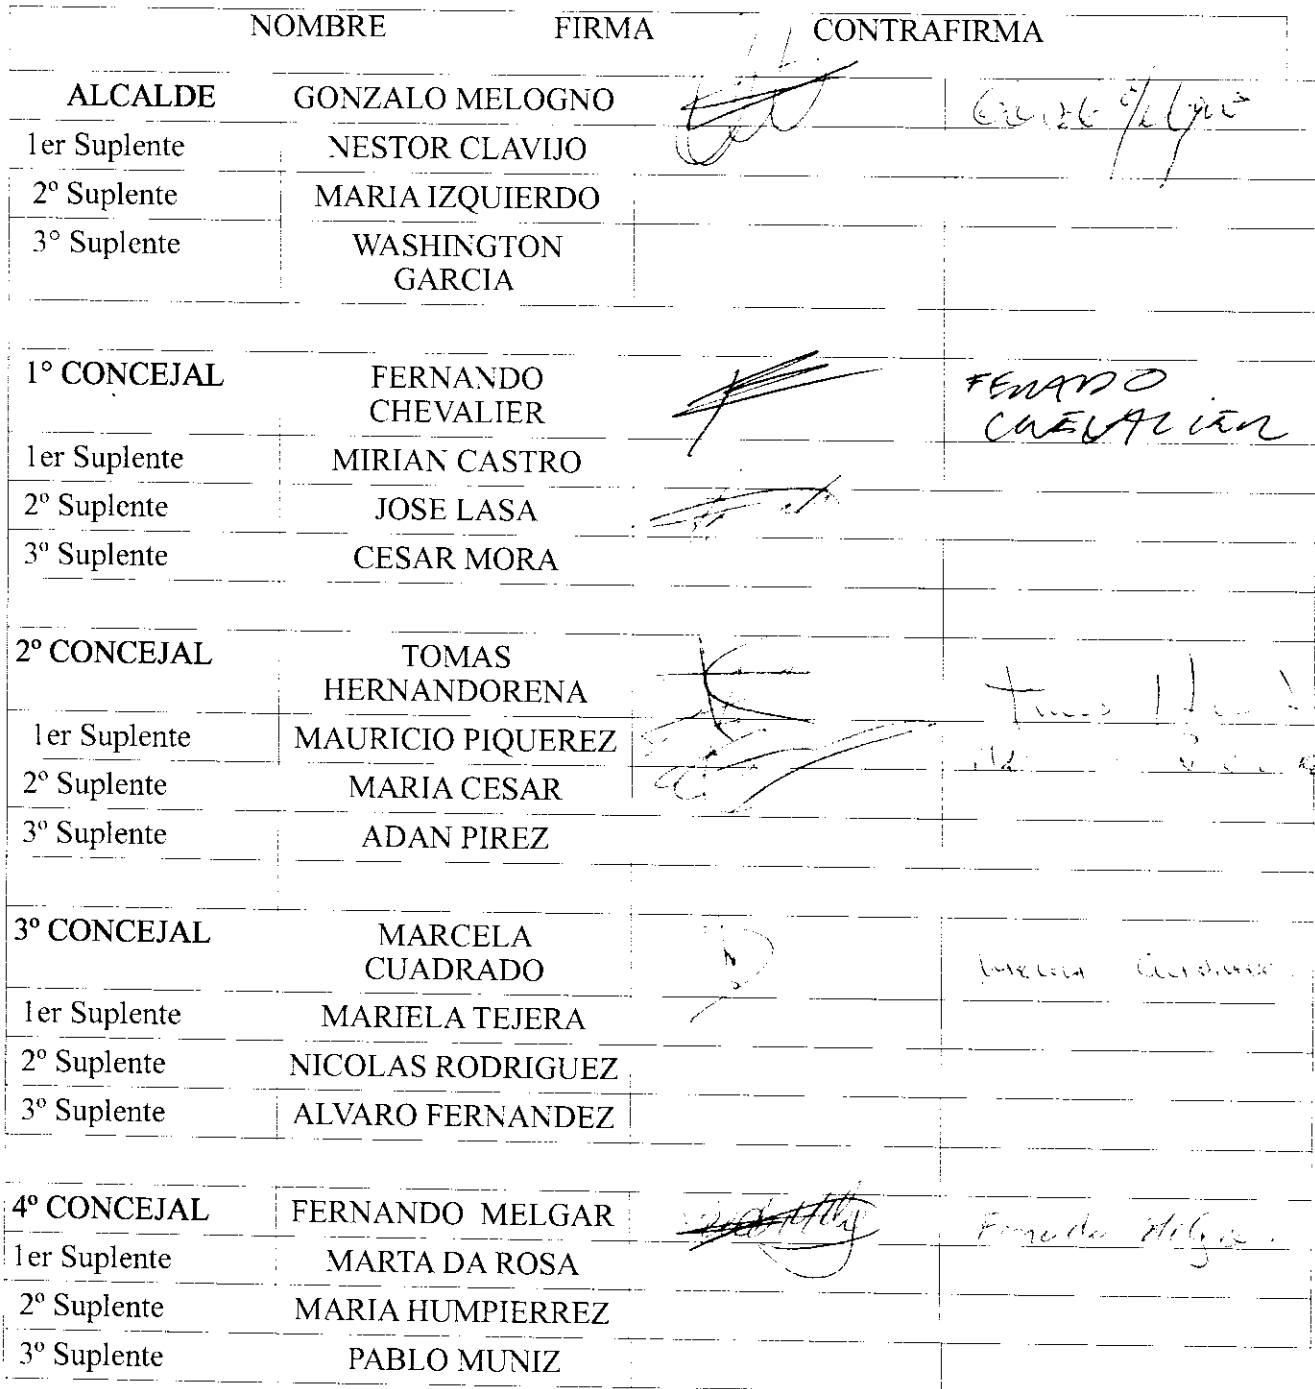 NOMBRE FIRMA CONTRAFIRMA
ALCALDE GONZALO MELOGNO
1er Suplente NESTOR CLAVIJO
2º Suplente MARIA IZQUIERDO
3° Suplente WASHINGTON
GARCIA
1° CONCEJAL FERNANDO
CHEVALIER
1er Suplente MIRIAN CASTRO
2º Suplente JOSE LASA
3º Suplente CESAR MORA
2º CONCEJAL TOMAS
HERNANDORENA
1er Suplente MAURICIO PIQUEREZ
2º Suplente MARIA CESAR
3º Suplente ADAN PIREZ
3º CONCEJAL MARCELA
CUADRADO
1er Suplente MARIELA TEJERA
2º Suplente NICOLAS RODRIGUEZ
3º Suplente ALVARO FERNANDEZ
4º CONCEJAL FERNANDO MELGAR
1er Suplente MARTA DA ROSA
2º Suplente MARIA HUMPIERREZ
3º Suplente PABLO MUNIZ